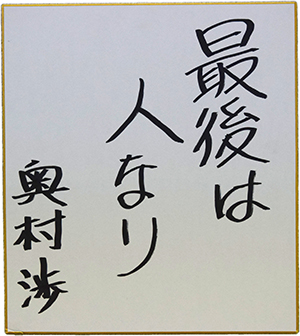 最後は
人なり
奥村渉